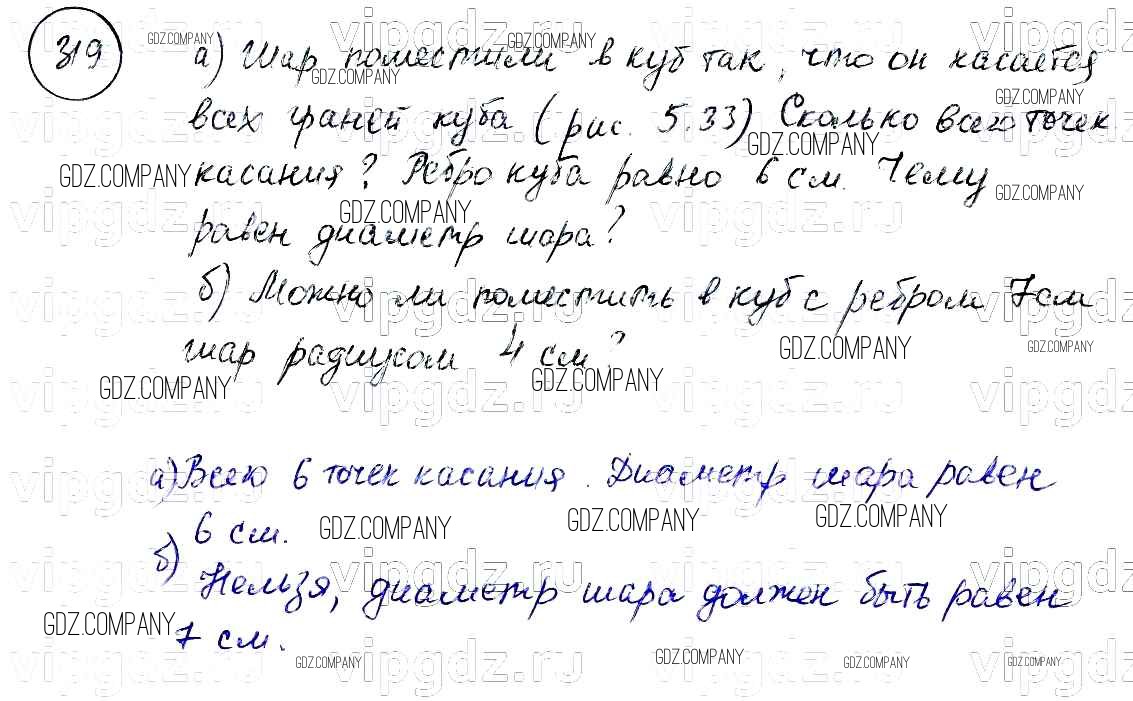 319
а) Шар поместили в куб так, что он касается
всех граней куба (рис. 5.33) Сколько всего точек
касания? Ребро куба равно 6 см. Чему
равен диаметр шара?
б) Можно ли поместить в куб с ребром 7 см
шар радиусом 4 см?
а) Всего 6 точек касания. Диаметр шара равен
6 см.
б)
Нельзя, диаметр шара должен быть равен
7 см.
GDZ.COMPANY
vipgdz.ru